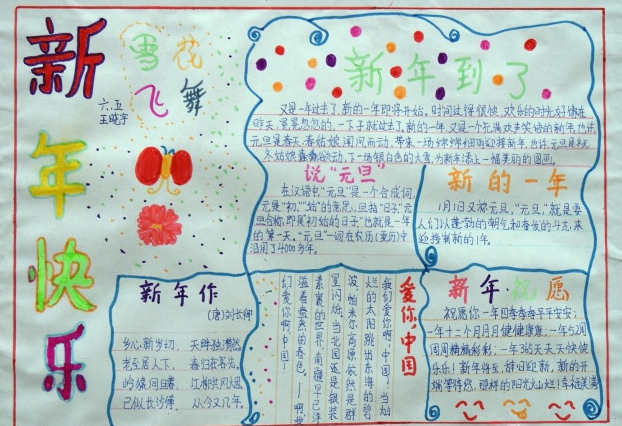 新年快乐
雪花
飞舞
六.五
王晓宇
新年到了
又是一年过去了,新的一年即将开始。时间过得很快,欢乐的时光好像在
昨天,匆匆忽忽的,一下子就过去了。新的一年,又是一个充满欢声笑语的新年。也许,
元旦是春天,春姑娘闻风而动,带来一场绵绵细雨迎接新年,也许,元旦是冬天,
冬姑娘蠢蠢欲动,下一场银白色的大雪,为新年添上一幅美丽的图画。
说“元旦”
在汉语中“元旦”是一个合成词,
元是“初”“始”的意思,旦指“日子”,元
旦合称,即是“初始的日子”也就是一年
的第一天。“元旦”一词在农历(夏历)中
沿用了4000多年。
新的一年
1月1日又称元旦,“元旦,”就是要
人们以蓬勃的朝气和奋发的斗志来
迎接崭新的1年。
新年作
(唐)刘长卿
乡心新岁切, 天畔独潸然。
老至居人下, 春归在客先。
岭猿同旦暮, 江柳共风烟。
已似长沙傅, 从今又几年。
爱你,中国
我们爱你啊,中国!当灿
烂的太阳跳出东海的碧
波,帕米尔高原依然是群
星闪烁;当北国还是银装
素裹的世界,南疆早已洋
溢着盎然的春色。——啊,我
们爱你啊,中国!
新年祝愿
祝愿你一年四季季季平平安安;
一年十二个月月月健健康康;一年52周
周周精精彩彩;一年365天天天快快
乐乐!新年将至,辞旧迎新,新的开
端等待您,那样的阳光灿烂!幸福美满